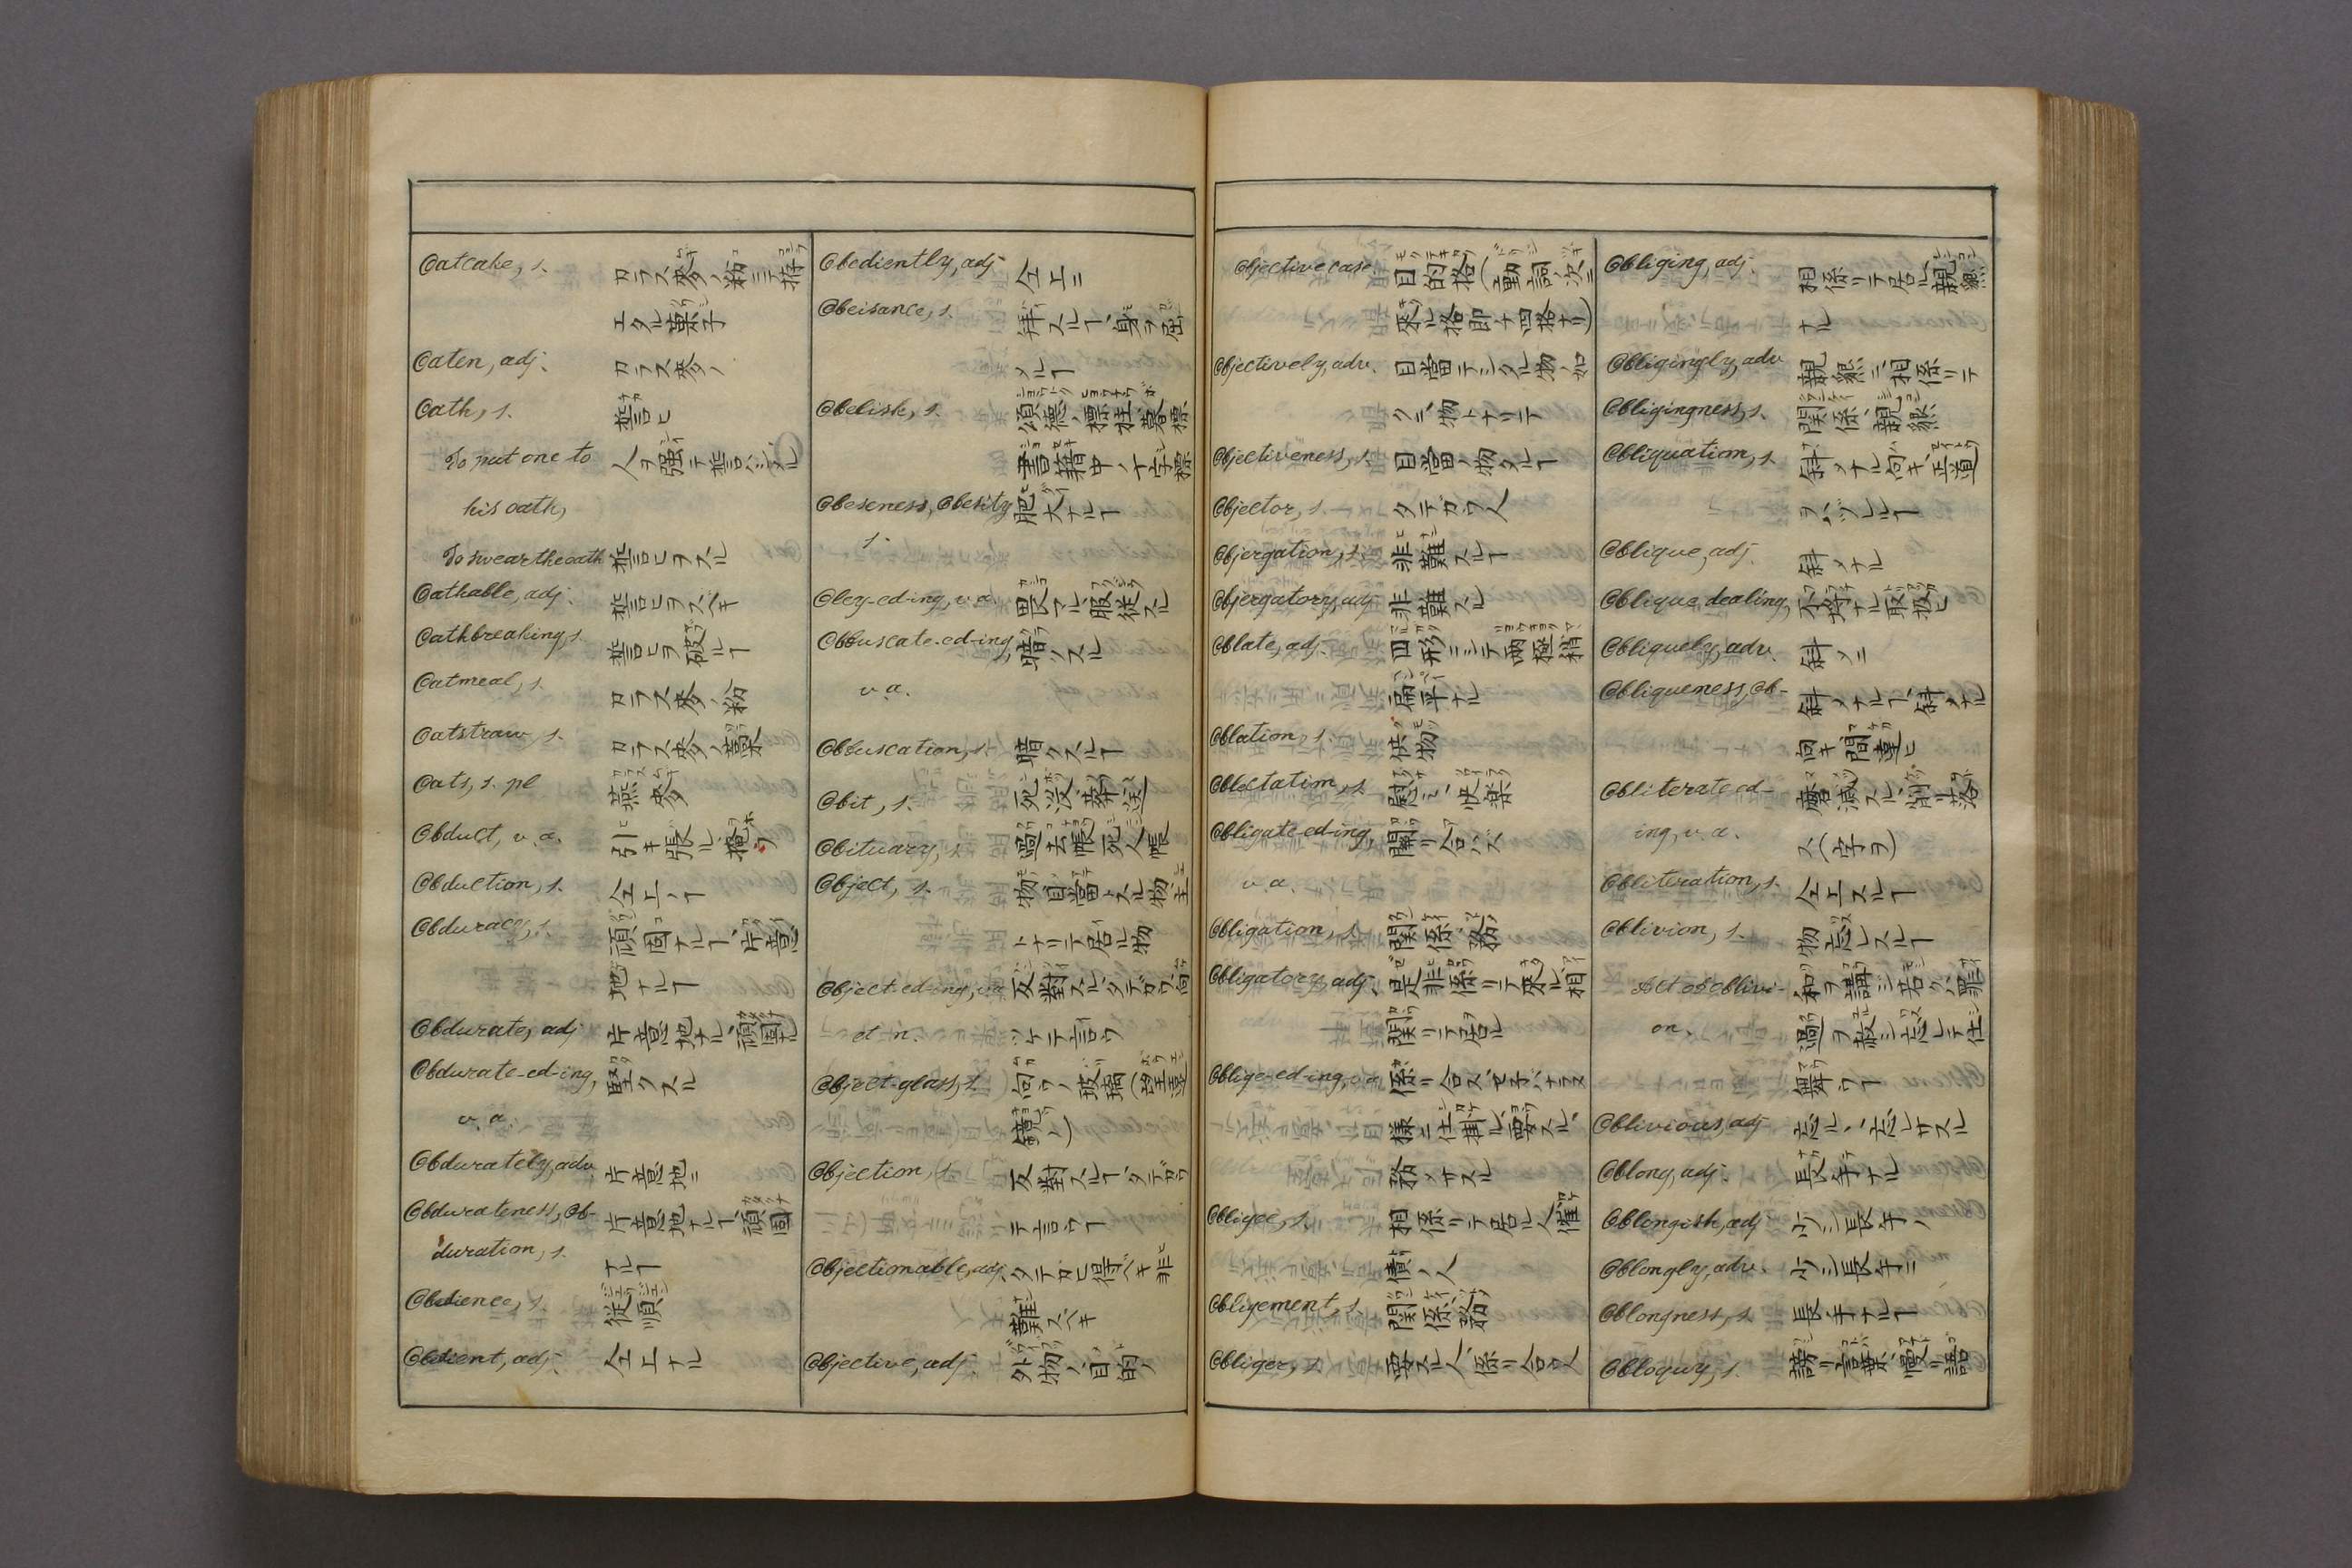 Oatcake, s. カラス麥ノ粉ニテ拵
エタル菓子
Oaten, adj. カラス麥ノ
Oath, s. 誓ヒ
To put one to 人ヲ強テ誓ハシムル
his oath,
To swear the oath 誓ヒヲスル
Oathable, adj. 誓ヒヲスベキ
Oathbreaking, s. 誓ヒヲ破ルヿ
Oatmeal, s. カラス麥ノ粉
Oatstraw, s. カラス麥ノ藁
Oats, s. pl 燕麥
Obduct, v. a. 引キ張ル
Obduction, s. 仝上ノヿ
Obduracy, s. 頑固ナルヿ、片意
地ナルヿ
Obdurate, adj 片意地ナル、頑固ナル
Obdurate-ed-ing, 堅クスル
v. a.
Obdurately, adv 片意地ニ
Obdurateness, Ob- 片意地ナルヿ、頑固
duration, s. ナルヿ
Obedience, s. 従順
Obedient, adj. 仝上ナル
Obediently, adj 仝上ニ
Obeisance, s. 拜スルヿ、身ヲ屈
メルヿ
Obelisk, s. 頌德ノ標柱、墓標
書籍中ノ十字標
Obeseness, Obesity 肥大ナルヿ
s.
Obey-ed-ing, v. a. 畏マル、服従スル
Obfuscate-ed-ing, 暗クスル
v. a.
Obfuscation, s. 暗クスルヿ
Obit, s. 死没、葬送
Obituary, s. 過去帳、死人帳
Object, s. 物、目當トスル物、主
トナリテ居ル物
Object-ed-ing, v. a. 反對スル、タテガウ、向
et n. ツケテ言ウ
Object-glass, s. 向ウノ玻璃(望遠
鏡ノ)
Objection, s. 反對スルヿ、タテガウ
テ言ウヿ
Objectionable, adj. タテガヒ得ベキ、非
難スベキ
Objective, adj. 外物ノ、目的ノ
Objective case 目的格(動詞ノ次ニ
來ル格即チ四格ナリ)
Objectively, adv. 目當テシタル物ノ如
クニ、物トナリテ
Objectiveness, s. 目當ノ物タルヿ
Objector, s. タテガウ人
Objergation, s. 非難スルヿ
Objergatory, adj 非難スル
Oblate, adj. 四形ニシテ兩極稍
扁平ナル
Oblation, s. 供物
Oblectation, s. 慰ミ、快樂
Obligate-ed-ing, 關リ合ハス
v. a.
Obligation, s. 関係、務
Obligatory, adj. 是非係リテ來ル、相
関リテ居ル
Oblige-ed-ing, v. a. 係リ合スセ子バナラヌ
樣ニ仕掛ル、要スル、
務メサスル
Obligee, s. 相係リテ居ル人、催
債ノ人
Obligement, s. 関係、務
Obliger, s. 要スル人、係リ合ウ人
Obliging, adj. 相係リテ居ル、親懇
ナル
Obligingly, adv 親懇ニ、相係リテ
Obligingness, s. 関係、親懇
Obliquation, s. 斜メナル向キ、正道
ヲハヅレルヿ
Oblique, adj. 斜メナル
Oblique dealing, 不埒ナル取扱ヒ
Obliquely, adv. 斜メニ
Obliqueness, Ob- 斜メナルヿ、斜メナル
向キ、間違ヒ
Obliterate-ed- 磨滅スル、削リ落
ing, v. a. ス(字ヲ)
Obliteration, s. 仝上スルヿ
Oblivion, s. 物忘レスルヿ
Act of oblivi- 和ヲ講ジ若クハ罪
on. 過ヲ赦シ忘レテ仕
舞ウヿ
Oblivious, adj 忘ル、、忘レサスル
Oblong, adj. 長手ナル
Oblongish, adj 少シ長手ノ
Oblongly, adv. 少シ長手ニ
Oblongness, s. 長手ナルヿ
Obloquy, s. 謗リ言葉、侮リ語